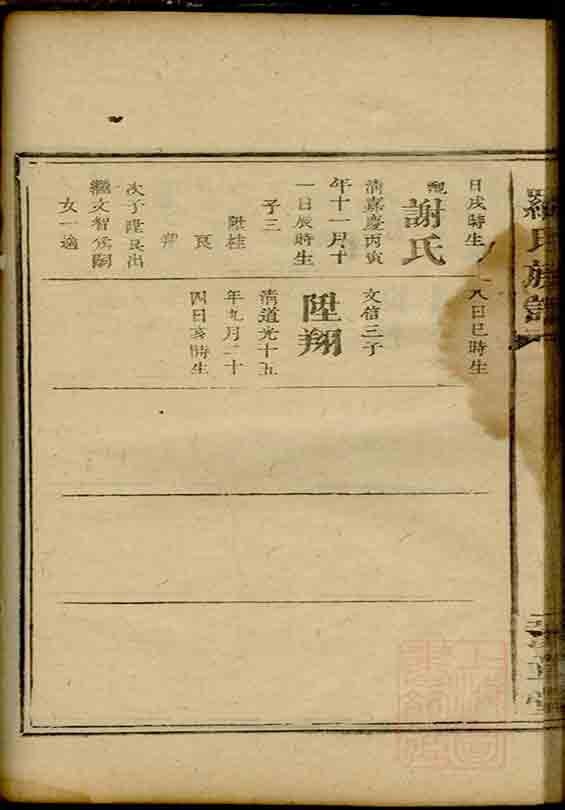 羅氏族譜
日戌時生
配
謝氏
清嘉慶丙寅
年十一月十
一日辰時生
子三
陞桂
良
翔
次子陞良出
繼文智為嗣
女一適
八日巳時生
文信三子
陞翔
清道光十五
年九月二十
四日亥時生